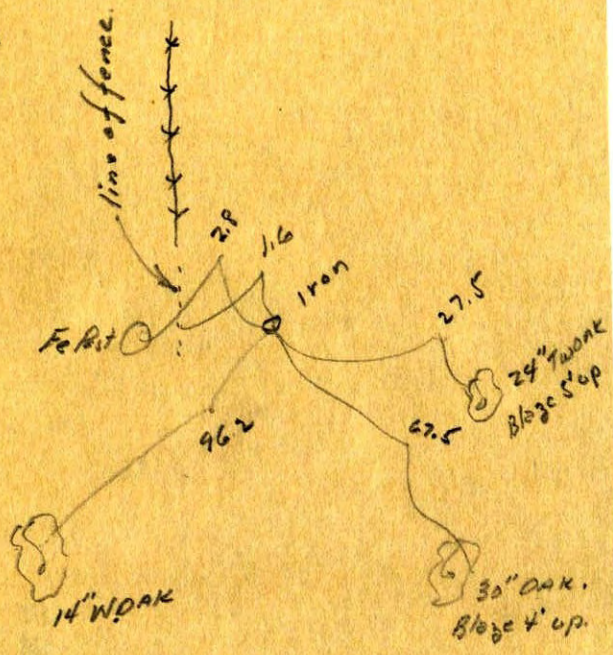 line of fence.
2.8
1.6
Iron
27.5
Fe Post
24" TWOAK
Blaze 5' up
67.5
96.2
14" W.OAK
30" OAK.
Blaze 4' up.